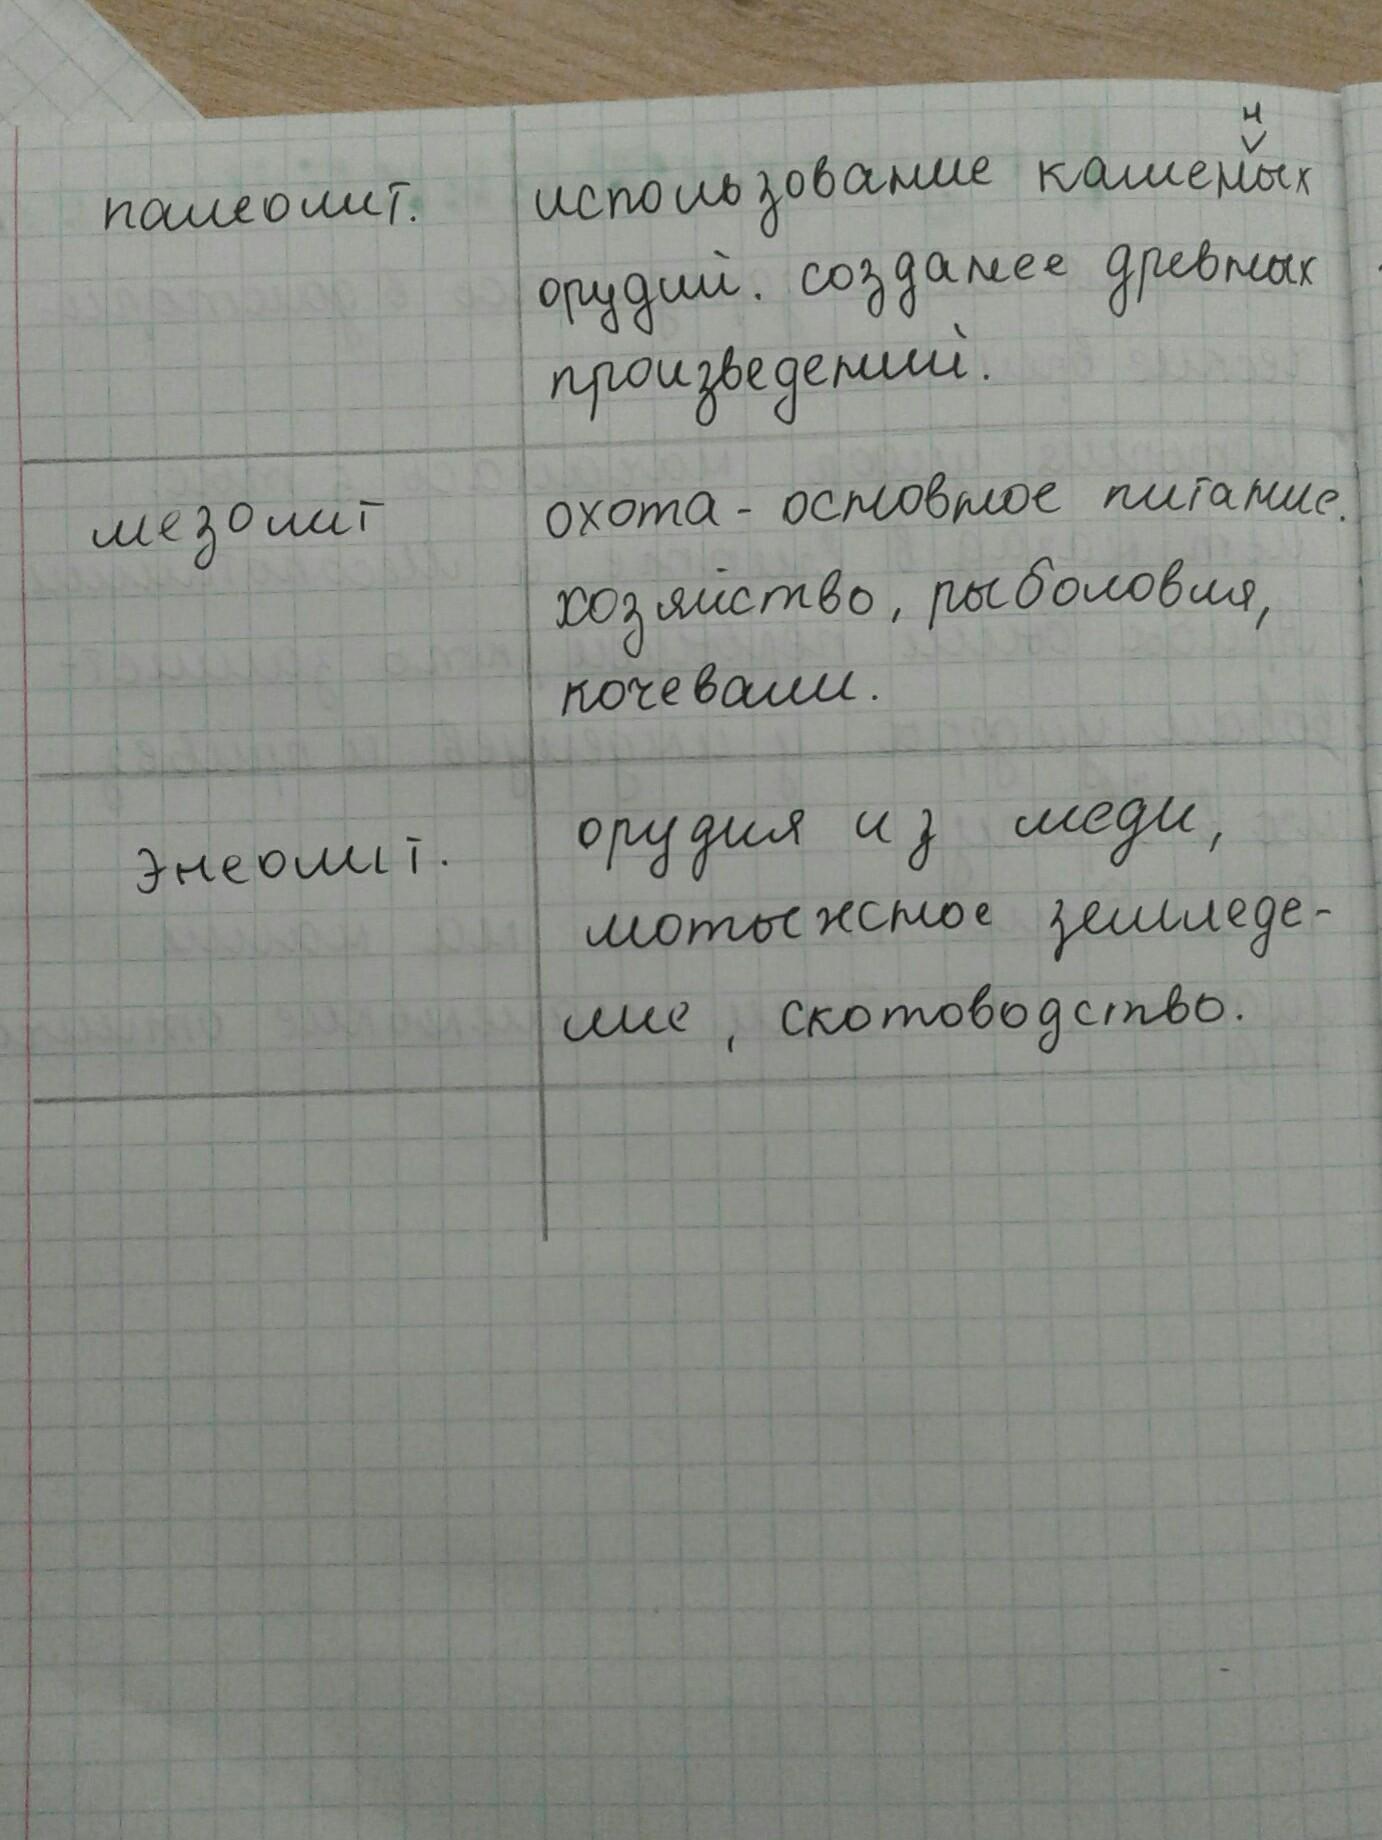 палеолит. использование каменных
орудий. созданее древных
произведений.
мезолит охота - основное питание.
хозяйство, рыболовля,
кочевали.
энеолит. орудия из меди,
мотыжное земледе-
лие, скотоводство.